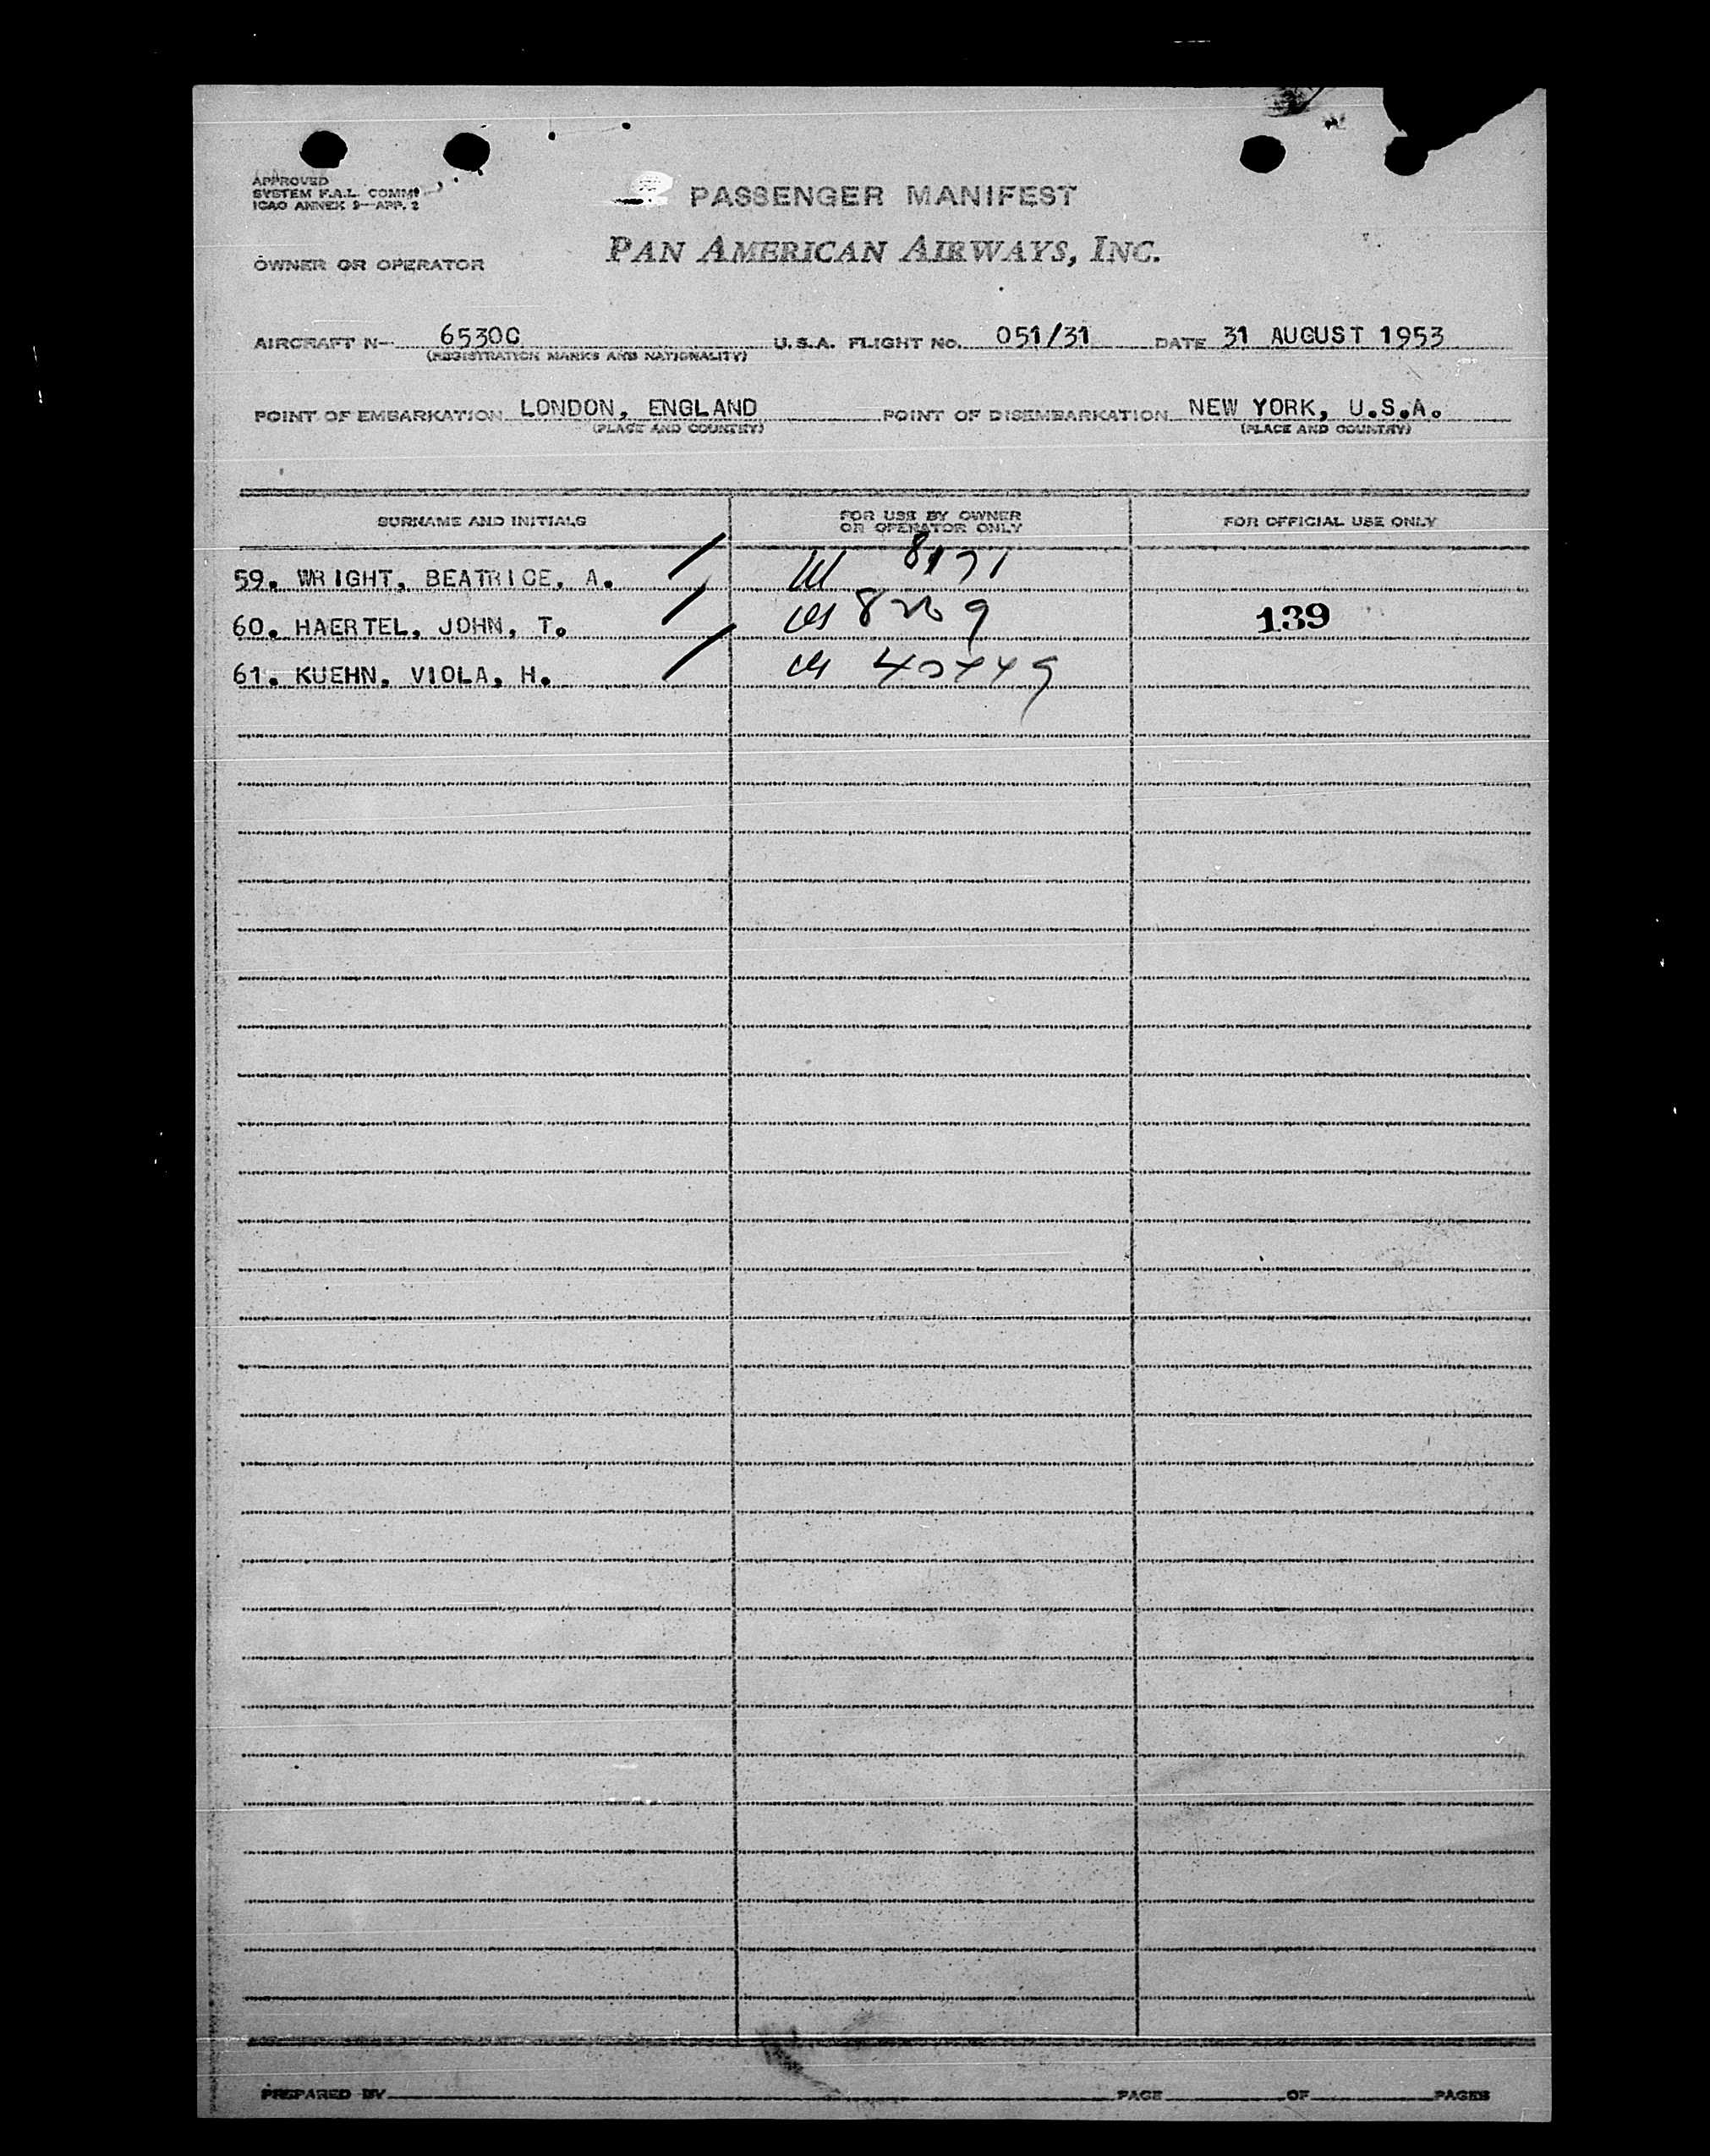 APPROVED
SYSTEM F.A.L. COMM.
ICAO ANNEX 9—APP. 2
PASSENGER MANIFEST
OWNER OR OPERATOR PAN AMERICAN AIRWAYS, INC.
AIRCRAFT N- 6530C U.S.A. FLIGHT NO. 051/31 DATE 31 AUGUST 1953
(REGISTRATION MARKS AND NATIONALITY)
POINT OF EMBARKATION LONDON, ENGLAND POINT OF DISEMBARKATION NEW YORK, U.S.A.
(PLACE AND COUNTRY) (PLACE AND COUNTRY)
SURNAME AND INITIALS FOR USE BY OWNER FOR OFFICIAL USE ONLY
OR OPERATOR ONLY
59. WRIGHT, BEATRICE, A. 8171
60. HAERTEL, JOHN, T. 139
61. KUEHN, VIOLA, H.
PREPARED BY PAGE OF PAGES